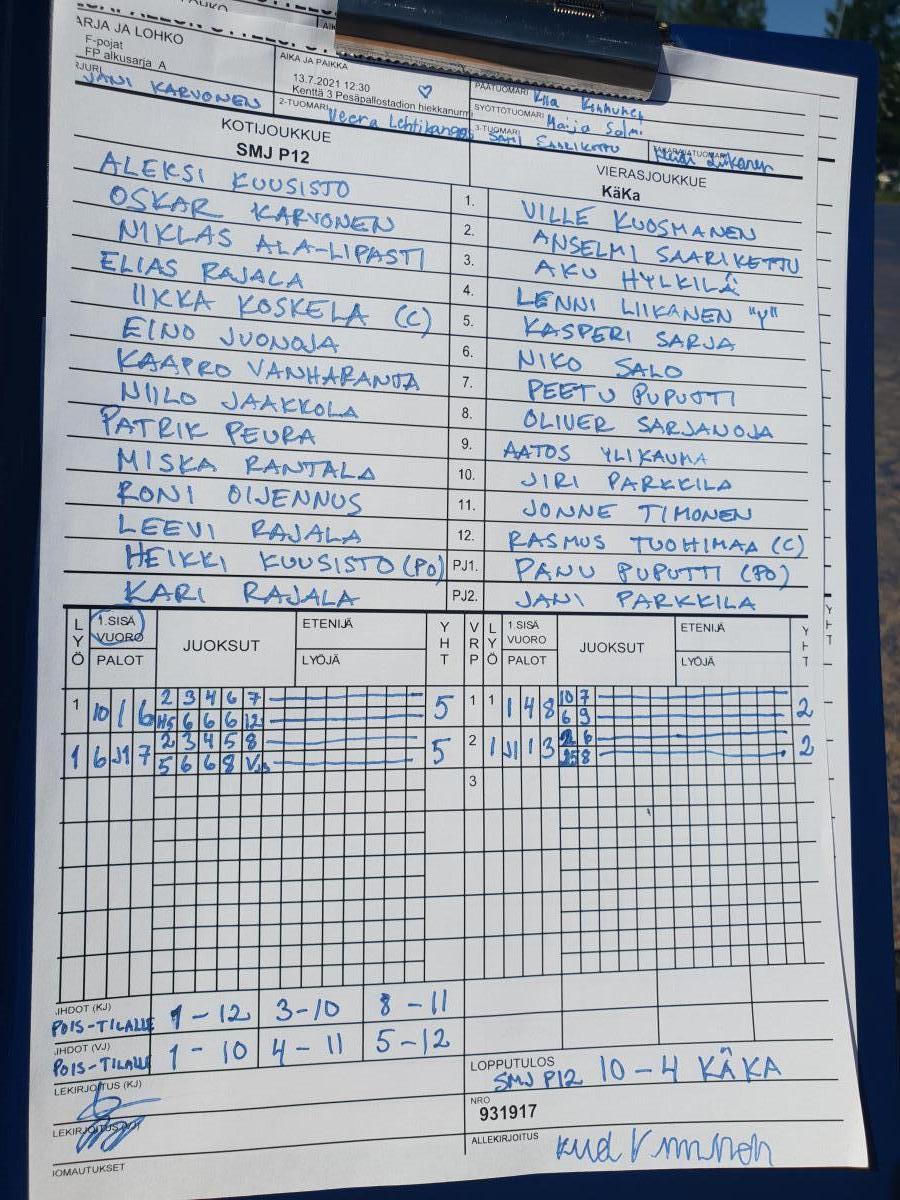 ARJA JA LOHKO
F-pojat
FP alkusarja A
AIKA JA PAIKKA
13.7.2021 12:30
Kenttä 3 Pesäpallostadion hiekkanurm
PÄÄTUOMARI
SYÖTTÖTUOMARI Maija Salmi
JANI KARVONEN
2-TUOMARI Veera Lehtikangas
3-TUOMARI SAMI SAARIKETTU
KOTIJOUKKUE
SMJ P12
VIERASJOUKKUE
KäKa
ALEKSI KUUSISTO 1. VILLE KUOSMANEN
OSKAR KARVONEN 2. ANSELMI SAARIKETTU
NIKLAS ALA-LIPASTI 3. AKU HYLKILÄ
ELIAS RAJALA 4. LENNI LIIKANEN "Y"
IIKKA KOSKELA (C) 5. KASPERI SARJA
EINO JUONOJA 6. NIKO SALO
KAAPRO VANHARANTA 7. PEETU PUPUTTI
NIILO JAAKKOLA 8. OLIVER SARJANOJA
PATRIK PEURA 9. AATOS YLIKAUMA
MISKA RANTALA 10. JIRI PARKKILA
RONI OIJENNUS 11. JONNE TIMONEN
LEEVI RAJALA 12. RASMUS TUOHIMAA (C)
HEIKKI KUUSISTO (PO) PJ1. PANU PUPUTTI (PO)
KARI RAJALA PJ2. JANI PARKKILA
LYÖ 1.SISÄ VUORO PALOT JUOKSUT ETENIJÄ LYÖJÄ YHT VRP LYÖ 1.SISÄ VUORO PALOT JUOKSUT ETENIJÄ LYÖJÄ YHT
1 10 1 6 2 3 4 6 7 5 1 1 1 4 8 10 7 2
6 6 6 12 6 9
1 6 J1 7 2 3 4 5 8 5 2 1 J1 1 3 6 2
5 6 6 8 8
3
POIS-TILALLE 1-12 3-10 8-11
POIS-TILALLE 1-10 4-11 5-12
LOPPUTULOS
SMJ P12 10-4 KÄKA
NRO
931917
ALLEKIRJOITUS